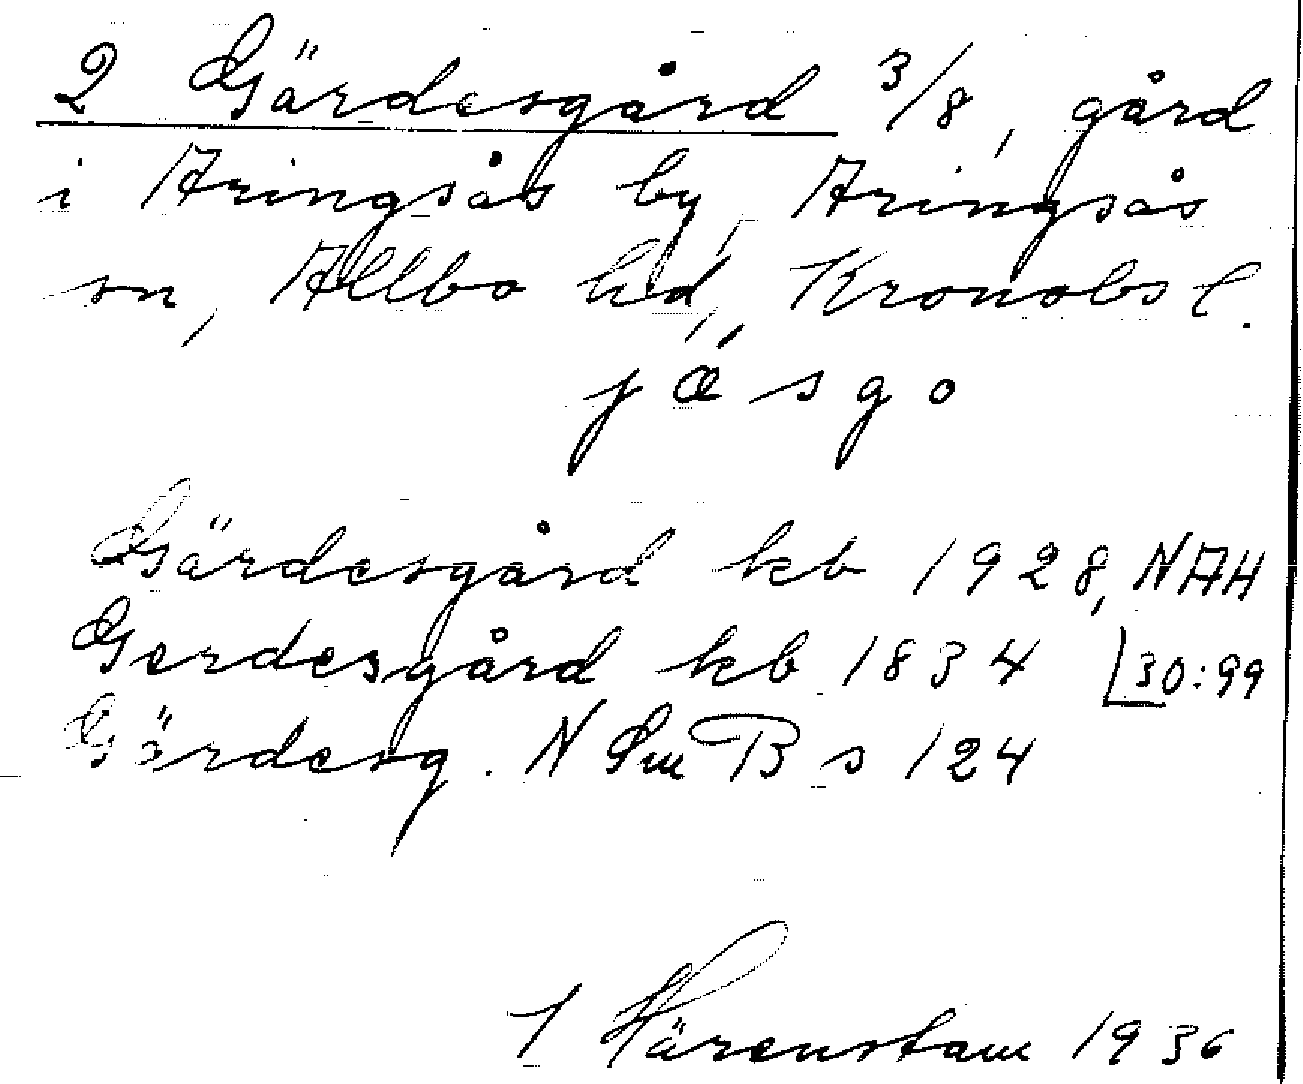 2 Gärdesgård 3/8, gård
i Aringsås by, Aringsås
sn, Allbo hd, Kronobs l.
Gärdesgård kb 1928, NAH
Gerdesgård kb 1834 30:99
Gärdesg. N Sm B s 124
Härenstam 1936